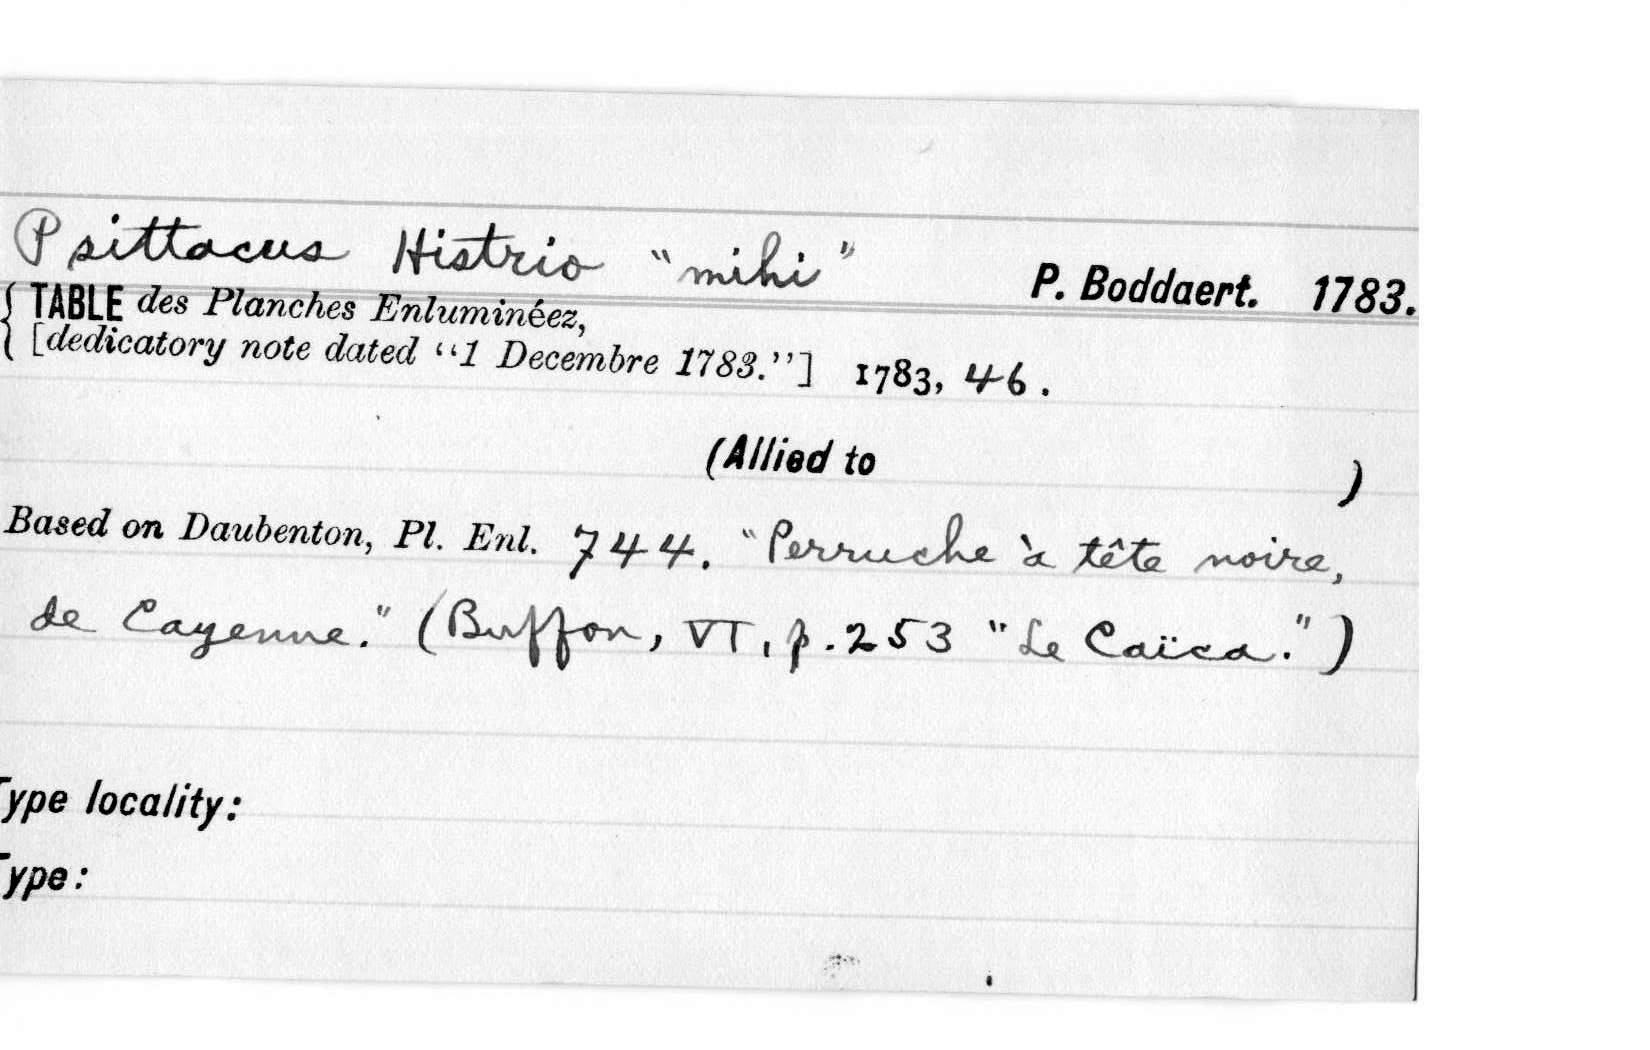 Psittacus Histrio "mihi" P. Boddaert. 1783.
{ TABLE des Planches Enluminéez,
{ [dedicatory note dated "1 Decembre 1783."] 1783, 46.
(Allied to )
Based on Daubenton, Pl. Enl. 744. "Perruche à tête noire,
de Cayenne." (Buffon, VI, p. 253 "Le Caïca.")
Type locality:
Type: